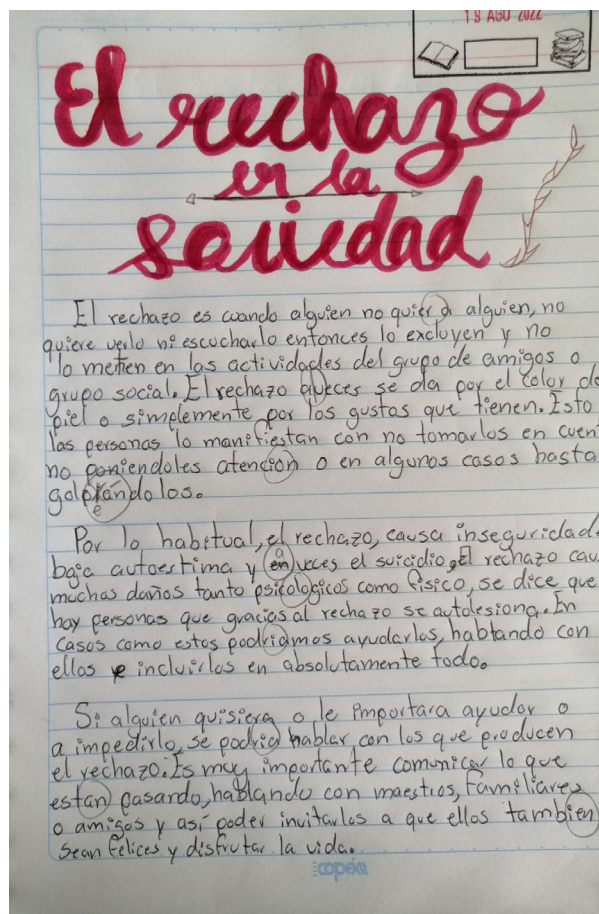 19 AGO 2022
El rechazo
en la
sociedad
El rechazo es cuando alguien no quier a alguien, no
quiere verlo ni escucharlo entonces lo excluyen y no
lo metten en las actividades del grupo de amigos o
grupo social. El rechazo aveces se da por el color de
piel o simplemente por los gustos que tienen. Esto
las personas lo manifiestan con no tomarlos en cuen
no poniendoles atención o en algunos casos hasta
golpeándolos.
Por lo habitual, el rechazo, causa inseguridad
baja autoestima y a veces el suicidio, El rechazo cau
muchos daños tanto psicologicos como fisico, se dice que
hay personas que gracias al rechazo se autolesiona. En
casos como estos podriamos ayudarlos, hablando con
ellos e incluirlos en absolutamente todo.
Si alguien quisiera o le importara ayudar o
a impedirlo, se podria hablar con los que producen
el rechazo. Es muy importante comunicar lo que
estan pasando, hablando con maestros, familiares
o amigos y así poder invitarlos a que ellos tambien
sean felices y disfrutar la vida.
copán